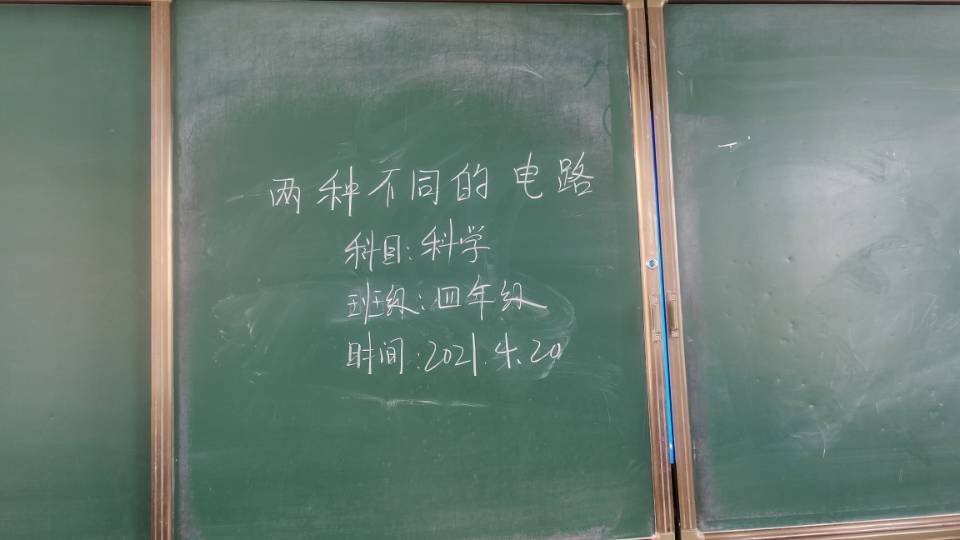 两种不同的电路
科目:科学
班级:四年级
时间:2021.4.20